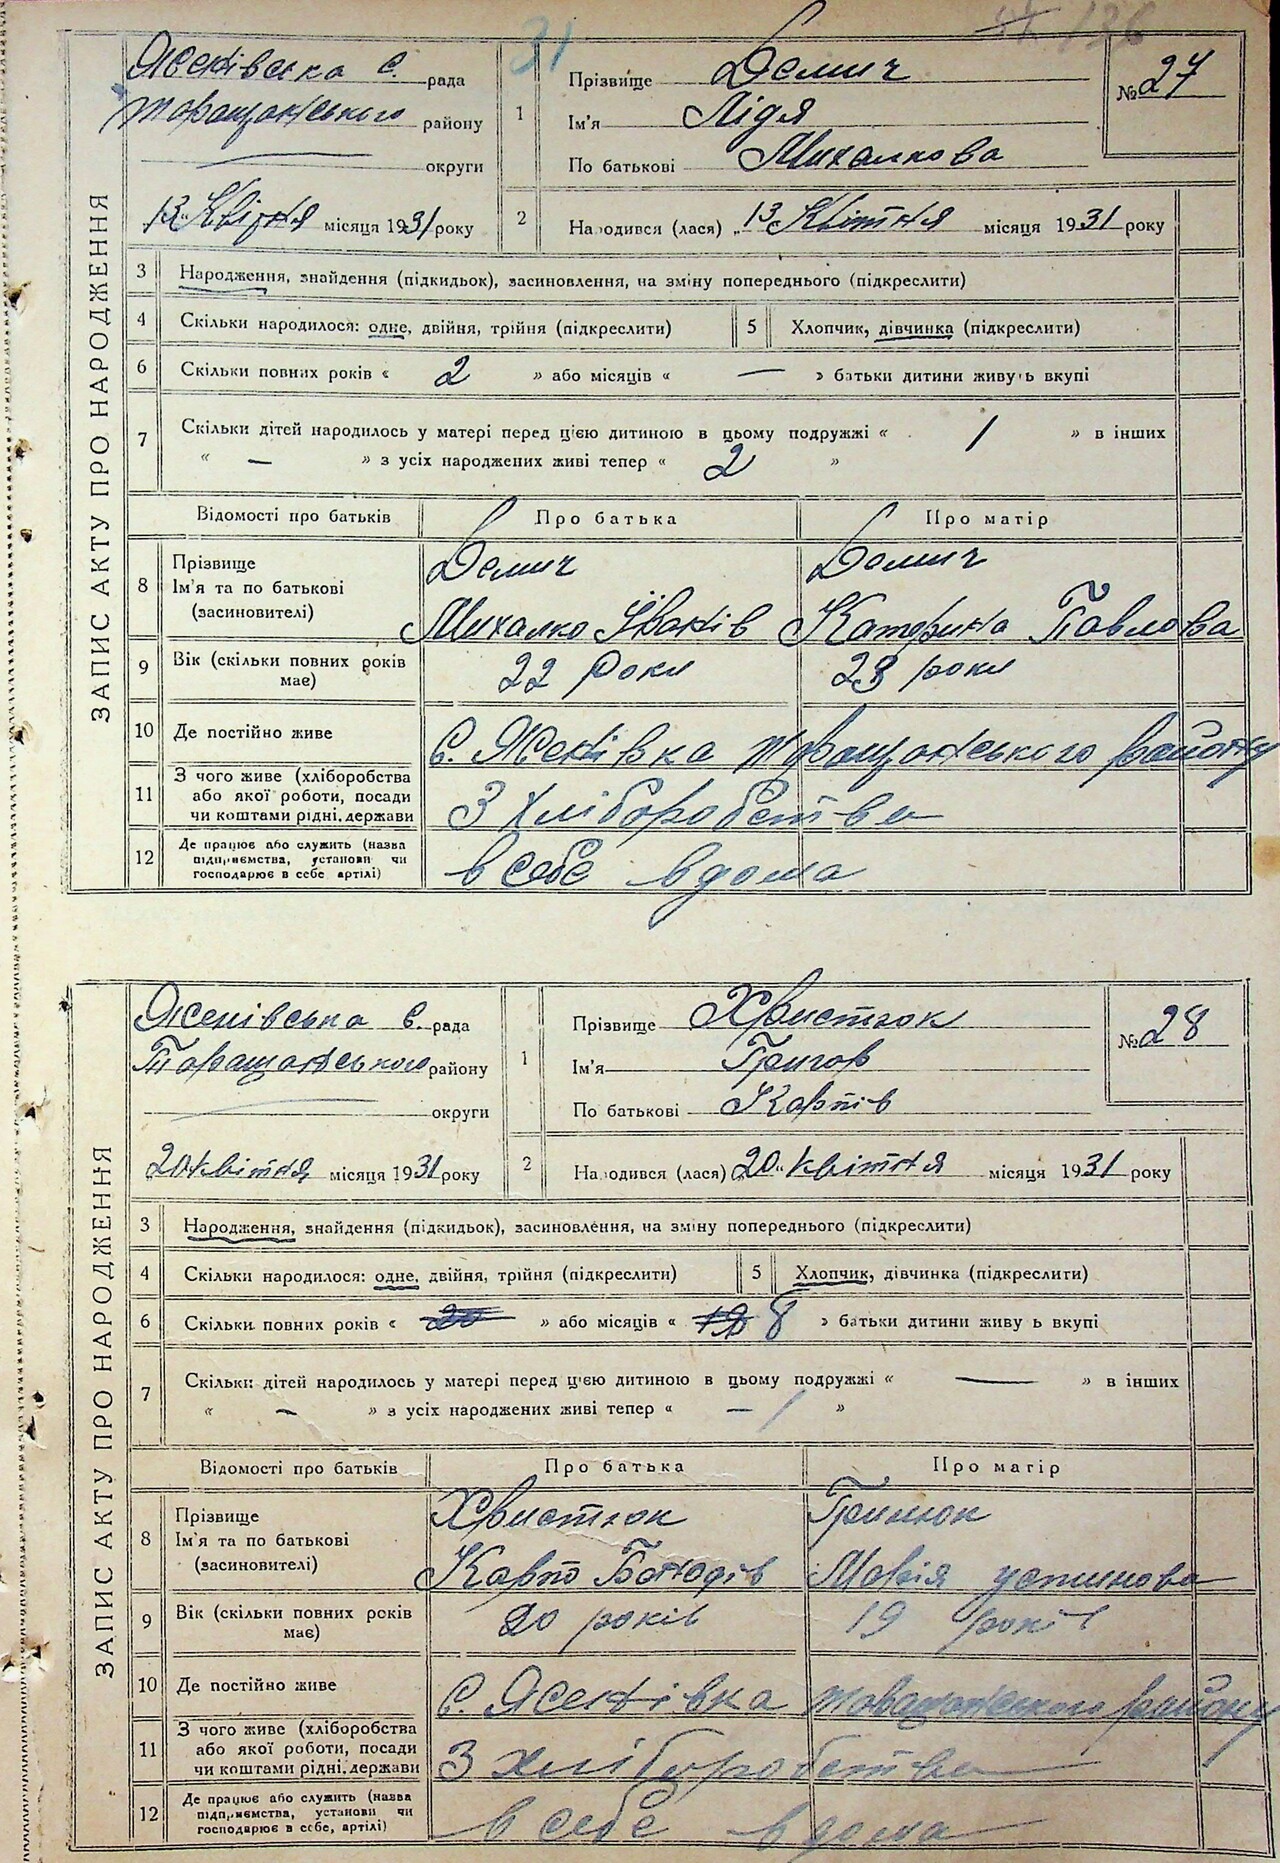 31
136
ЗАПИС АКТУ ПРО НАРОДЖЕННЯ
Ясенівська с. рада
Таращанського району
округи
1
Прізвище Демич
Ім'я Лідя
По батькові Михалкова
№ 27
13 Квітня місяця 1931 року
2
Народився (лася) „13 Квітня місяця 1931 року
3 Народження, знайдення (підкидьок), засиновлення, на зміну попереднього (підкреслити)
4 Скільки народилося: одне, двійня, трійня (підкреслити) 5 Хлопчик, дівчинка (підкреслити)
6 Скільки повних років « 2 » або місяців « — » батьки дитини живуть вкупі
7 Скільки дітей народилось у матері перед цією дитиною в цьому подружжі « 1 » в інших
« — » з усіх народжених живі тепер « 2 »
Відомості про батьків Про батька Про матір
8 Прізвище Ім'я та по батькові (засиновителі)
Демич Демич
Михалко Іванів Катерина Павлова
9 Вік (скільки повних років має) 22 роки 23 роки
10 Де постійно живе с. Ясенівка Таращанського району
11 З чого живе (хліборобства або якої роботи, посади чи коштами рідні, держави
З хліборобства
12 Де працює або служить (назва підприємства, установи чи господарює в себе артілі)
в себе вдома
ЗАПИС АКТУ ПРО НАРОДЖЕННЯ
Ясенівська с. рада
Таращанського району
округи
1
Прізвище Хвистюк
Ім'я Григор
По батькові Карпів
№ 28
20 квітня місяця 1931 року
2
Народився (лася) „20" квітня місяця 1931 року
3 Народження, знайдення (підкидьок), засиновлення, на зміну попереднього (підкреслити)
4 Скільки народилося: одне, двійня, трійня (підкреслити) 5 Хлопчик, дівчинка (підкреслити)
6 Скільки повних років « 20 » або місяців « 8 » батьки дитини живуть вкупі
7 Скільки дітей народилось у матері перед цією дитиною в цьому подружжі « — » в інших
« — » з усіх народжених живі тепер « — 1 »
Відомості про батьків Про батька Про матір
8 Прізвище Ім'я та по батькові (засиновителі)
Хвистюк
Карпо Маркія устинова
9 Вік (скільки повних років має) 20 років 19 років
10 Де постійно живе с. Ясенівка Таращанського району
11 З чого живе (хліборобства або якої роботи, посади чи коштами рідні, держави
З хліборобства
12 Де працює або служить (назва підприємства, установи чи господарює в себе, артілі)
в себе вдома